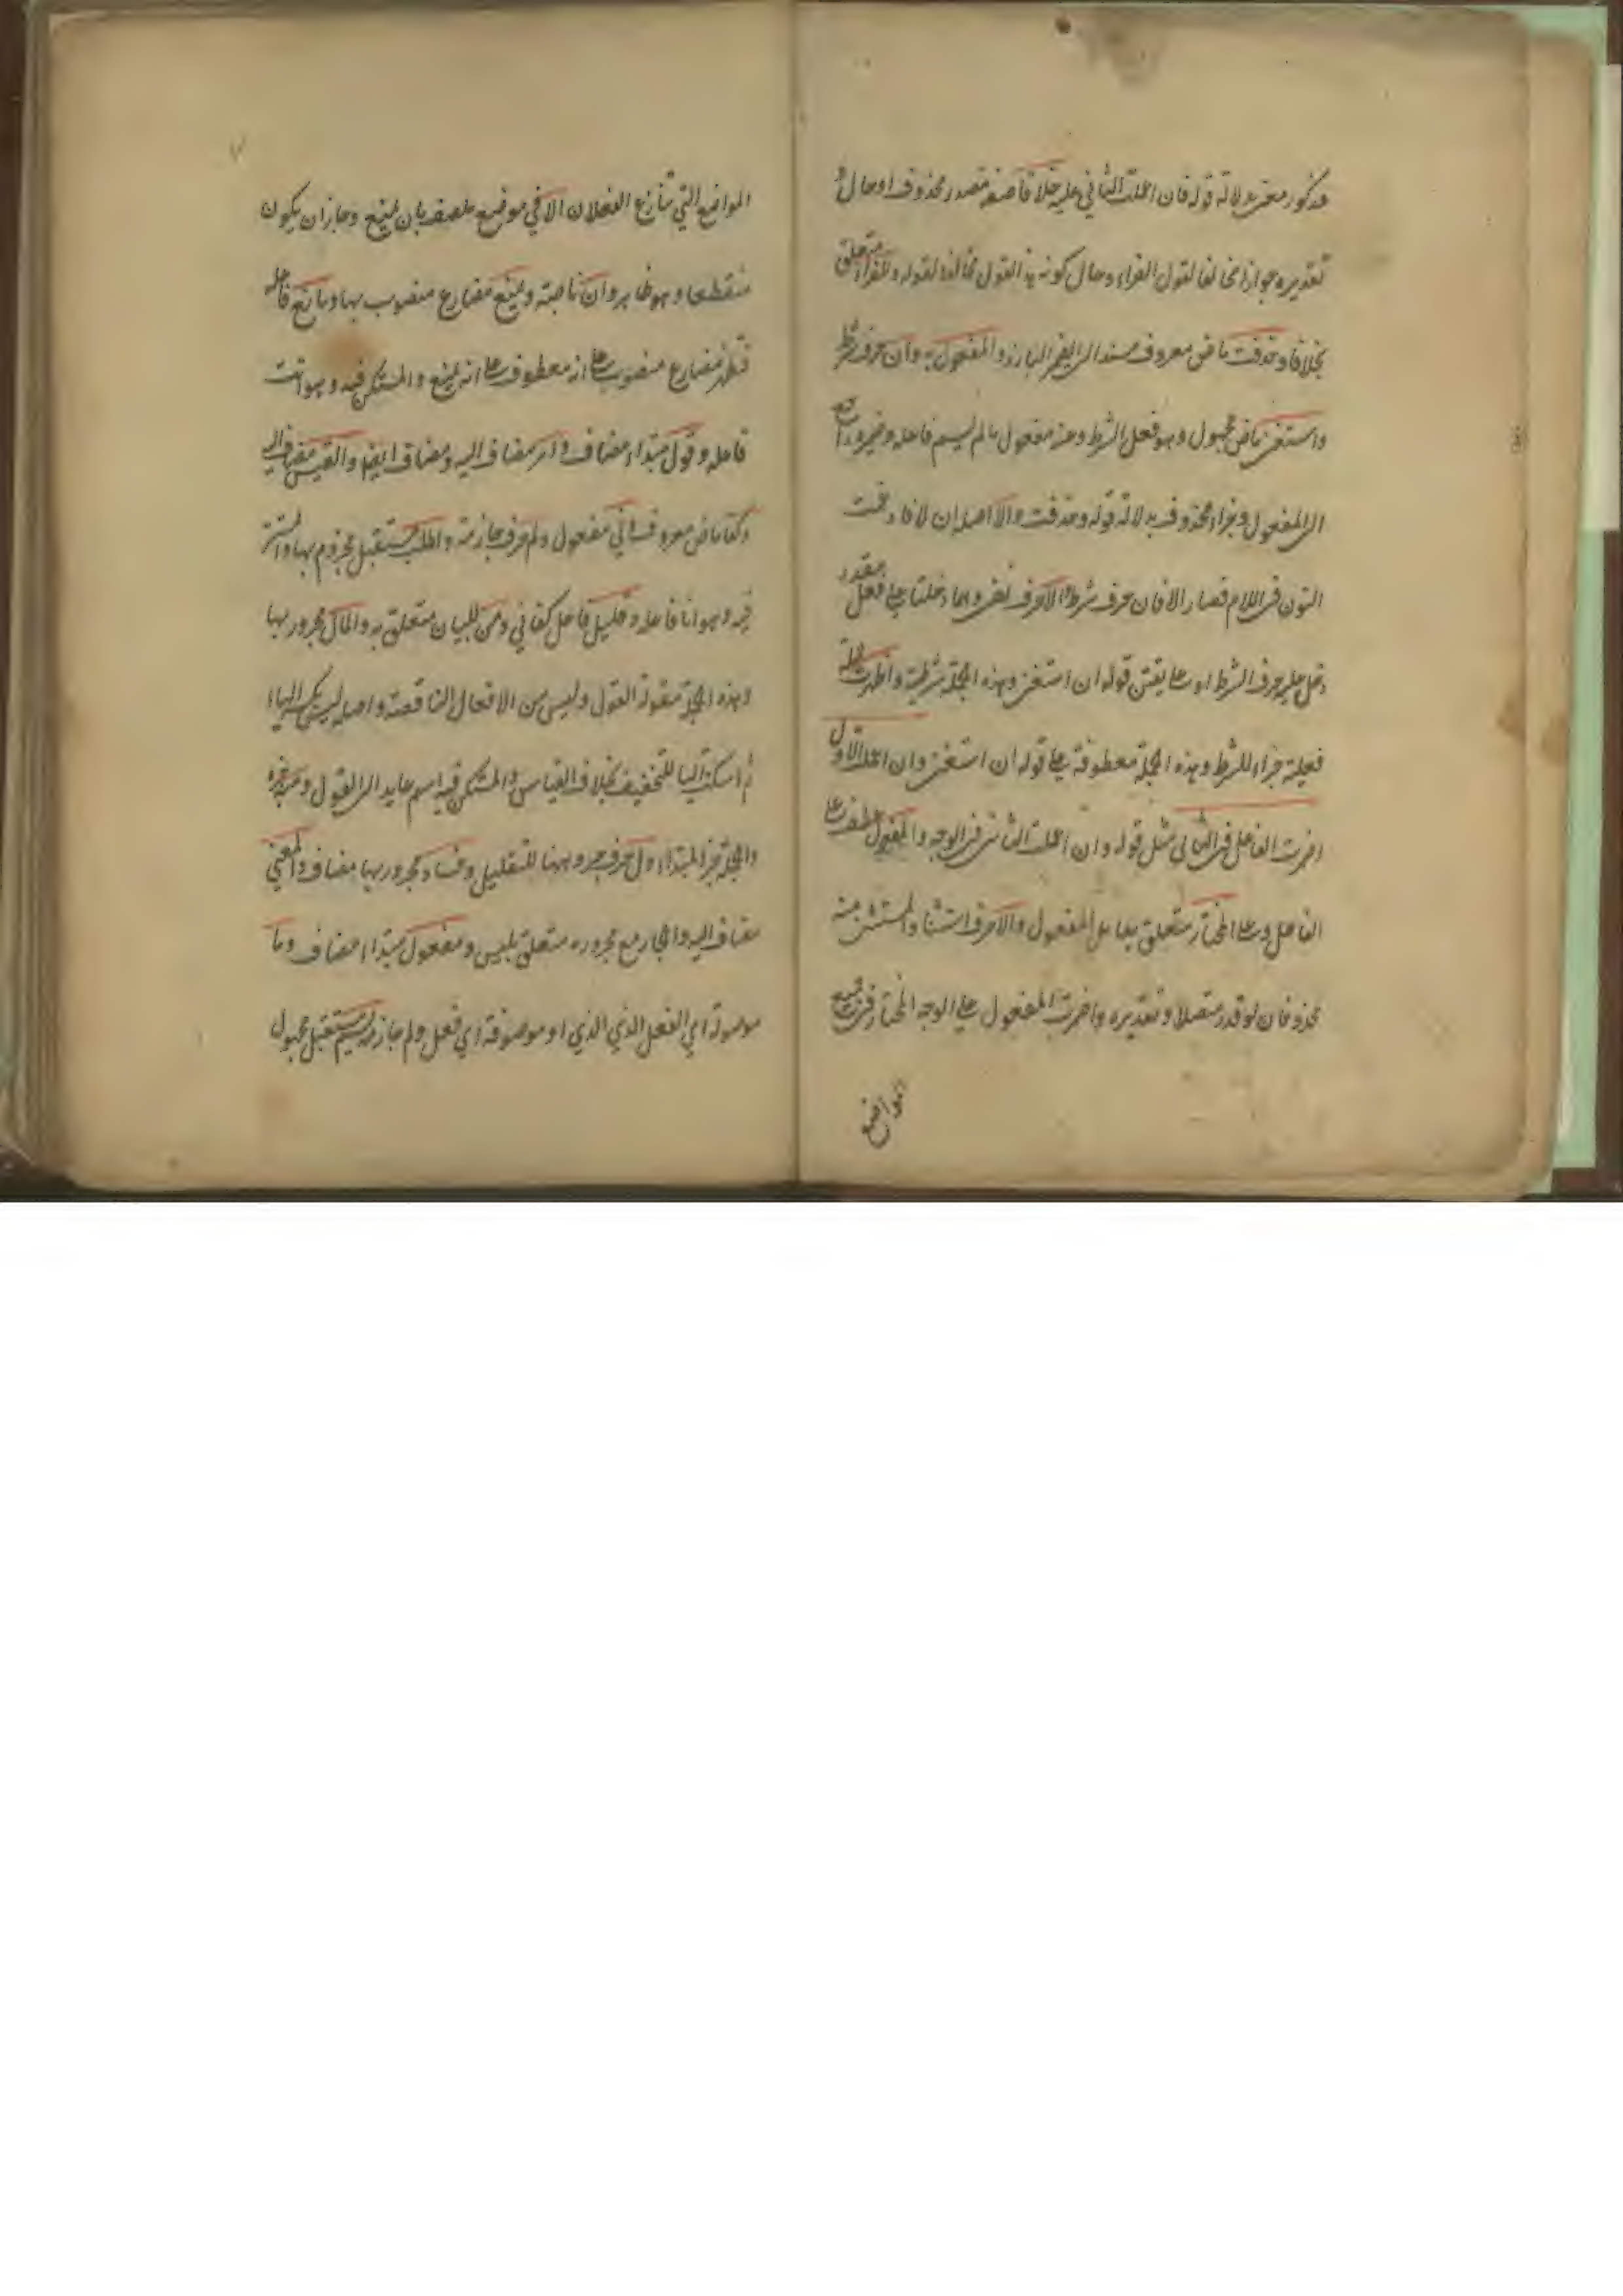 مذكور معنى بدلالة قوله فان اعملت الثاني عليه خلافا صفة مصدر محذوف او حال و
تقديره جوازا مخالفا لقول الفراء وحال كونه هذا القول مخالفا لقوله وللفراء متعلق
بخلافا وحذفت ماض معروف مسند الى الضمير البارز والمفعول به وان حرف شرط
واستغنى ماض مجهول وهو فعل الشرط وعنه مفعول ما لم يسم فاعله وضميره راجع
الى المفعول وجزاءه محذوف بدلالة قوله وحذفت والا اصله ان لا فادغمت
النون في اللام فصار الا فان حرف شرط ولا حرف نفى وانما دخلتا على فعل مقدر
دخل عليه حرف الشرط اى وعلى نقيض قوله ان استغنى وهذه الجملة شرطية واظهرت جملة
فعلية جزاء للشرط وهذه الجملة معطوفة على قوله ان استغنى وان اعملت الاول
اضمرت الفاعل في الثاني مثل قوله وان اعملت الثاني في الوجه والمفعول عطف على
الفاعل وعلى المختار متعلق بعامل المفعول والا حرف استثناء والمستثنى منه
محذوفان لو قدر متصلا وتقديره واضمرت المفعول على الوجه المختار في جميع
المواضع
المواضع التي تنازع الفعلان الا في موضع ملصف بان يمنع وجاز ان يكون
منقطعا وهو ظاهر وان ناصبة ويمنع مضارع منصوب بها ومانع فاعله
فتظهر مضارع منصوب على انه معطوف على انه يمنع والمستكن فيه وهو انت
فاعله وقول مبتداء مضاف وامر مضاف اليه ومضاف ايضا والقيس مضاف اليه
وكفا ماض معروف وني مفعول ولم حرف جازمة واطلب مستقبل مجزوم بها والمستتر
فيه وهو انا فاعله وقليل فاعل كفاني ومن للبيان متعلق به والمال مجرور بها
وهذه الجملة مقولة القول وليس من الافعال الناقصة واصله ليس بكسر الياء
ثم اسكنت الياء للتخفيف بخلاف القياس والمستكن فيه اسم عايد الى القول ومنه خبره
والجملة خبر المبتداء ول حرف جر وههنا للتعليل وفساد مجرور بها مضاف والمعنى
مضاف اليه والجار مع مجروره متعلق بليس ومفعول مبتداء مضاف وما
موصولة اي الفعل الذي او موصوفة اي فعل ولم جازمة يسم مستقبل مجهول